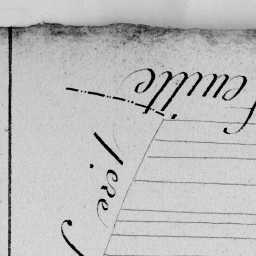 feuille
1.ere